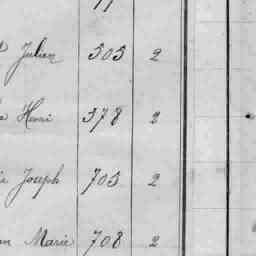 Julien 505 2
Henri 378 2
Joseph 705 2
Marie 708 2